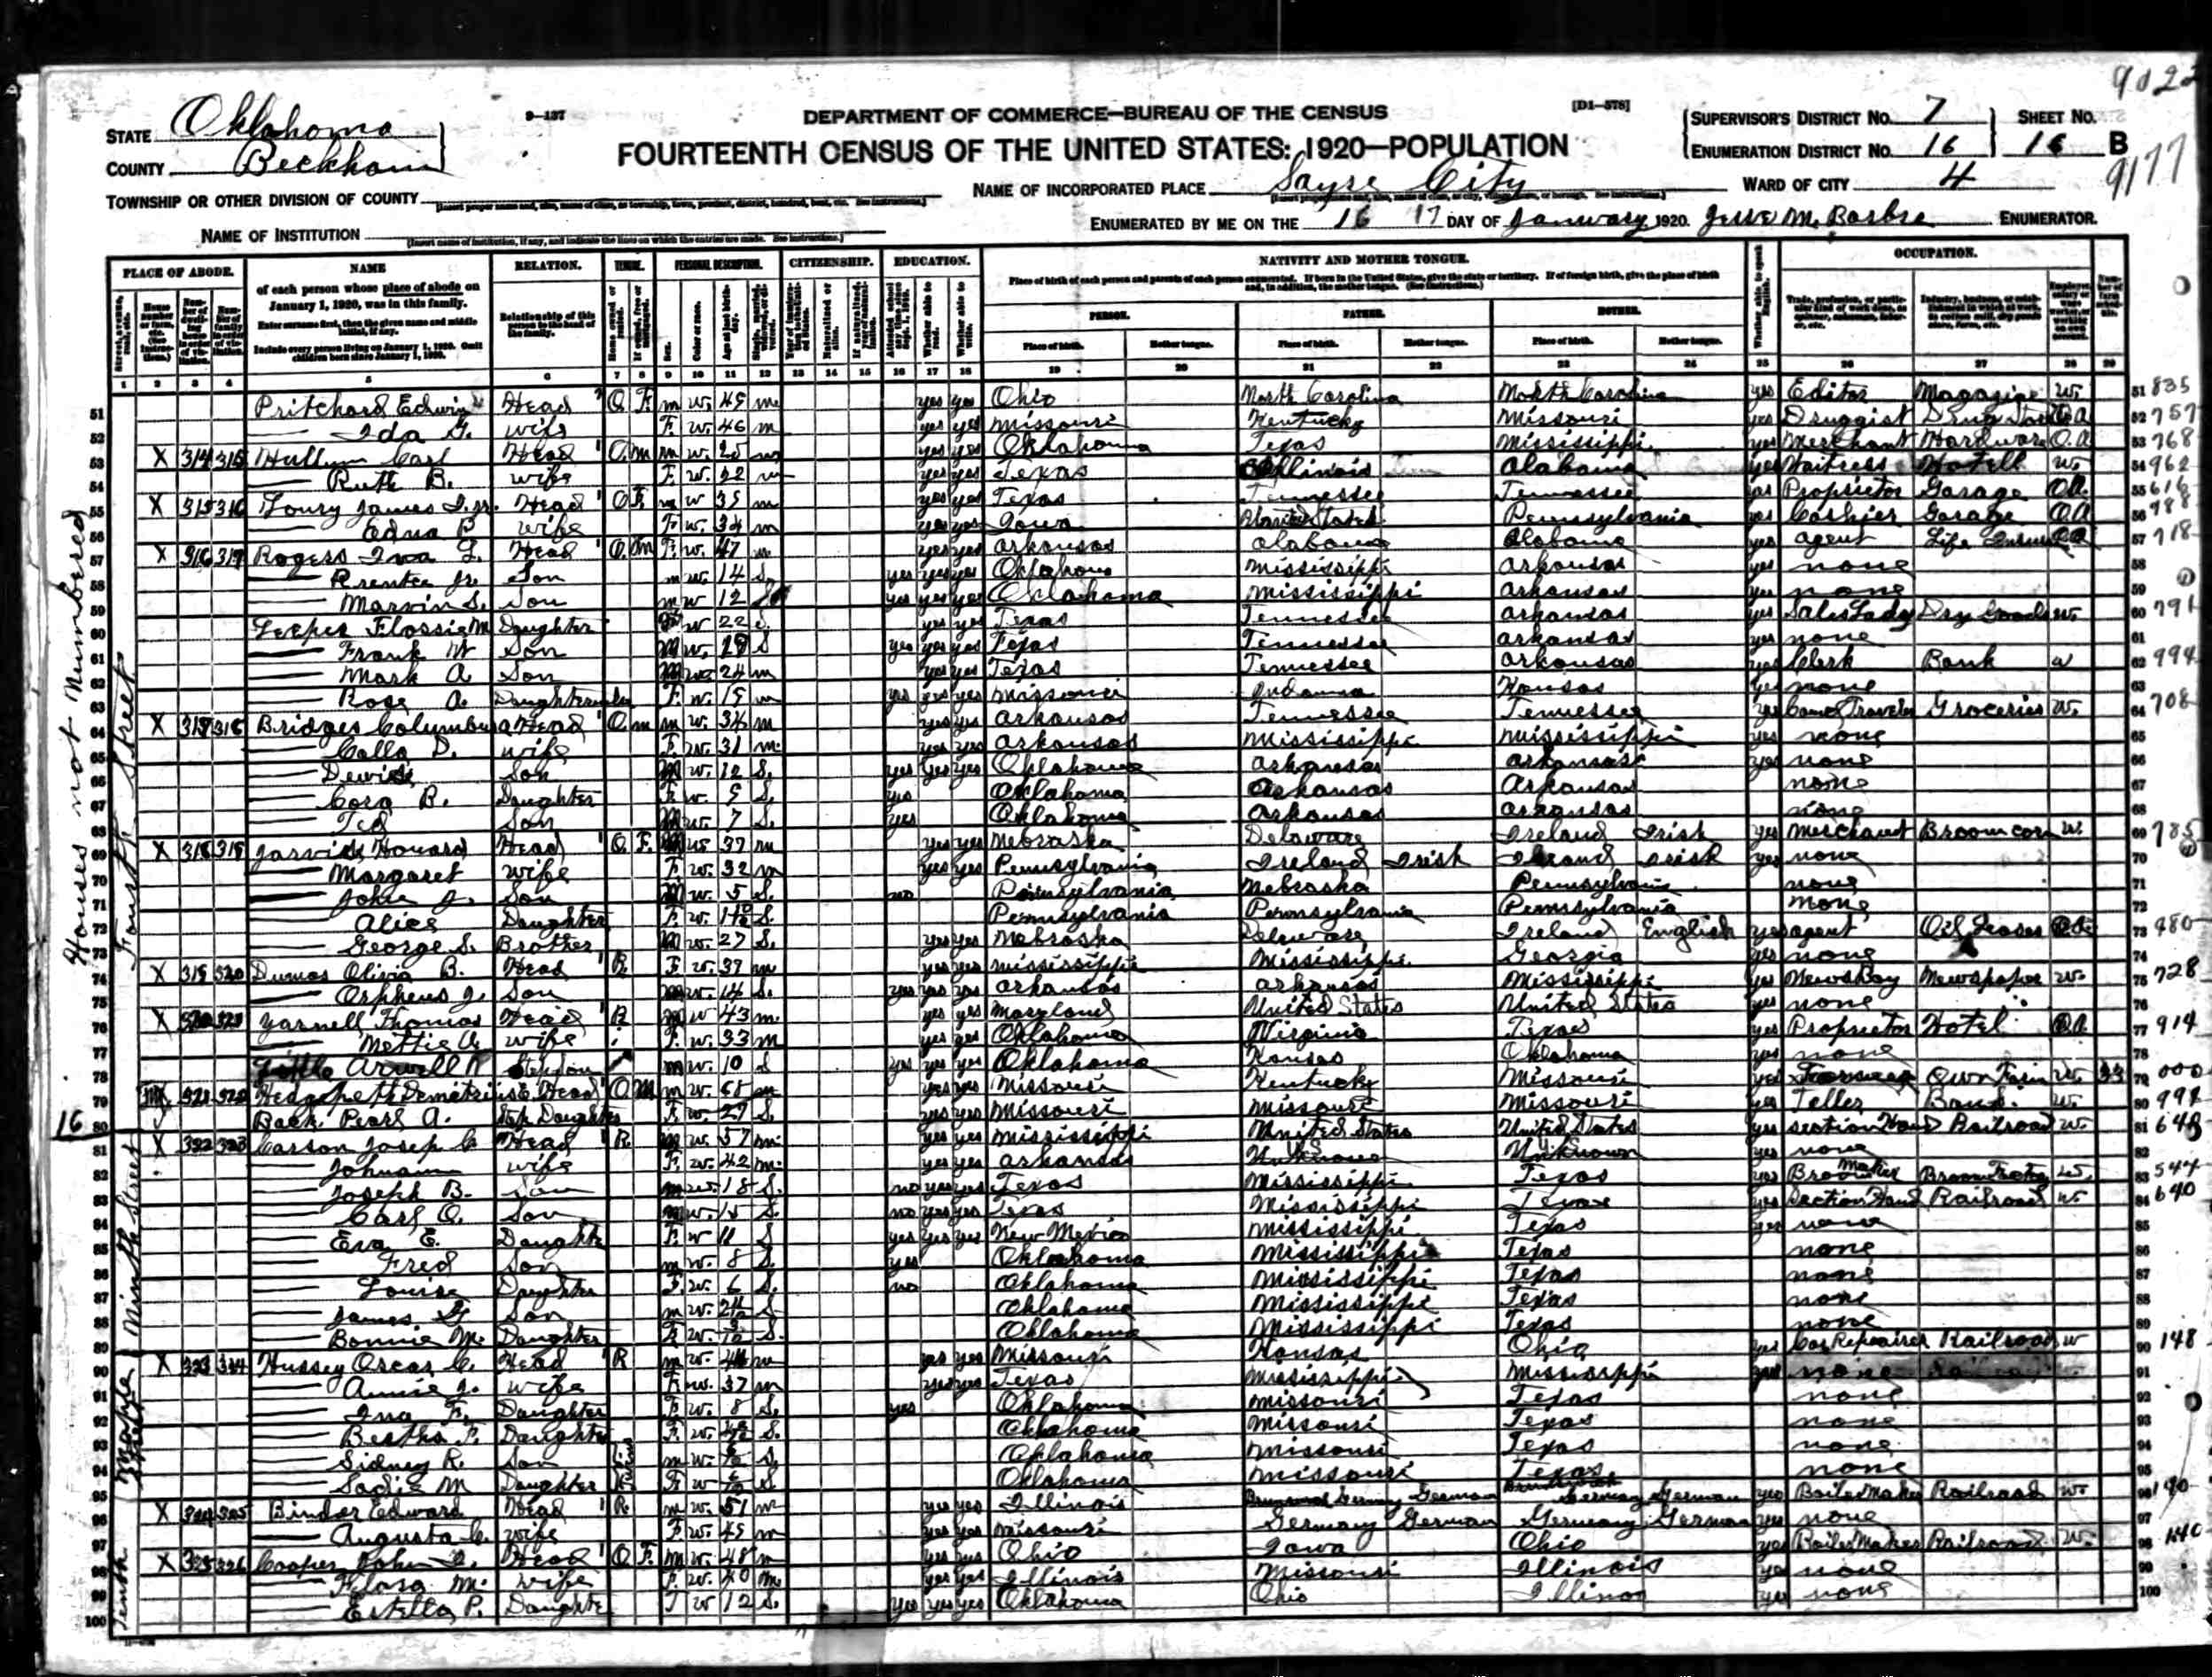 9022
DEPARTMENT OF COMMERCE—BUREAU OF THE CENSUS
[D1—578]
9—137
STATE Oklahoma
COUNTY Beckham
FOURTEENTH CENSUS OF THE UNITED STATES: 1920—POPULATION
SUPERVISOR'S DISTRICT No. 7
ENUMERATION DISTRICT No. 16
SHEET No. 16 B
9177
TOWNSHIP OR OTHER DIVISION OF COUNTY
NAME OF INCORPORATED PLACE Sayre City
WARD OF CITY 4
NAME OF INSTITUTION
ENUMERATED BY ME ON THE 16 17 DAY OF January, 1920. Jesse M. ENUMERATOR.
PLACE OF ABODE. NAME RELATION. TENURE. PERSONAL DESCRIPTION. CITIZENSHIP. EDUCATION. NATIVITY AND MOTHER TONGUE. OCCUPATION.
of each person whose place of abode on January 1, 1920, was in this family.
Enter surname first, then the given name and middle initial, if any.
Include every person living on January 1, 1920. Omit children born since January 1, 1920.
Relationship of this person to the head of the family.
PERSON. FATHER. MOTHER.
Place of birth. Mother tongue. Place of birth. Mother tongue. Place of birth. Mother tongue.
Houses not Numbered
Fourth Street
51 Pritchard Edwin Head O F m w 49 m yes yes Ohio North Carolina North Carolina yes Editor Magazine w 835
52 Ida G. wife F w 46 m yes yes Missouri Kentucky Missouri yes Druggist Drug Store OA 757
53 X 314 315 Hullum Carl Head O m m w 25 m yes yes Oklahoma Texas Mississippi yes Merchant Hardware OA 768
54 Ruth B. wife F w 22 m yes yes Texas Illinois Alabama yes Waitress Hotell w 962
55 X 315 316 Loury James Head O F m w 35 m yes yes Texas Tennessee Tennessee yes Proprietor Garage OA 616
56 Edna B wife F w 34 m yes yes Iowa United States Pennsylvania yes Cashier Garage OA 988
57 X 316 317 Rogers Iva L. Head O m F w 47 yes yes Arkansas Alabama Alabama yes agent Life OA 718
58 Prentice Jr. Son m w 14 S yes yes yes Oklahoma Mississippi Arkansas yes none
59 Marvin S. Son m w 12 S yes yes yes Oklahoma Mississippi Arkansas yes none
60 Leeper Flossie M Daughter F w 22 S yes yes Texas Tennessee Arkansas yes Sales Lady Dry Goods w 791
61 Frank W Son M w 19 S yes yes yes Texas Tennessee Arkansas yes none
62 Mark A Son M w 24 m yes yes Texas Tennessee Arkansas yes Clerk Bank w 994
63 Rose A. Daughter in law F w 19 m yes yes yes Missouri Indiana Kansas yes none
64 X 317 318 Bridges Columbus A Head O m m w 34 m yes yes Arkansas Tennessee Tennessee yes Com Traveler Groceries w 708
65 Calla D. wife F w 31 m yes yes Arkansas Mississippi Mississippi yes none
66 Dewis Son M w 12 S yes yes yes Oklahoma Arkansas Arkansas yes none
67 Cora B. Daughter F w 9 S yes Oklahoma Arkansas Arkansas none
68 Ted Son M w 7 S yes Oklahoma Arkansas Arkansas none
69 X 318 319 Jarvis Howard Head O F M w 37 m yes yes Nebraska Delaware Ireland Irish yes Merchant Broom corn w 785
70 Margaret wife F w 32 m yes yes Pennsylvania Ireland Irish Ireland Irish yes none
71 John J. Son M w 5 S no Pennsylvania Nebraska Pennsylvania none
72 Alice Daughter F w S Pennsylvania Pennsylvania Pennsylvania none
73 George S. Brother M w 27 S yes yes Nebraska Delaware Ireland English yes agent Oil Leases OA 980
74 X 319 320 Dumas Olivia B. Head R F w 39 m yes yes Mississippi Mississippi Georgia yes none
75 Orpheus J. Son M w 14 S yes yes yes Arkansas Arkansas Mississippi yes Newsboy Newspaper w 728
76 X 320 321 Yarnell Thomas Head R M w 43 m yes yes Maryland United States United States yes none
77 Nettie A wife F w 33 m yes yes Oklahoma Virginia Texas yes Proprietor Hotel OA 914
78 Little Arwell R Stepson m w 10 S yes yes yes Oklahoma Kansas Oklahoma yes none
79 321 322 Hedgpeth Demetrius E. Head O M m w 68 m yes yes Missouri Kentucky Missouri yes Own Farm 000
80 Back Pearl A. Step Daughter F w 27 S yes yes Missouri Missouri Missouri yes Teller Bank w 994
16
Ninth Street
81 X 322 323 Carson Josep C Head R m w 57 m yes yes Mississippi United States United States yes section Hand Railroad w 648
82 Johnann wife F w 42 m yes yes Arkansas Unknown Unknown yes none
83 Joseph B. Son m w 18 S no yes yes Texas Mississippi Texas yes Broom Maker Broom Factory w 544
84 Carl O. Son m w 15 S no yes yes Texas Mississippi Texas yes Section Hand Railroad w 640
85 Eva E. Daughte F w 11 S yes yes yes New Mexico Mississippi Texas yes none
86 Fred Son m w 8 S yes Oklahoma Mississippi Texas none
87 Louise Daughter F w 6 S no Oklahoma Mississippi Texas none
88 James Son m w S Oklahoma Mississippi Texas none
89 Bonnie M. Daughter F w S Oklahoma Mississippi Texas none
Maple Street
90 X 323 324 Hussey Oscar C. Head R m w 44 m yes yes Missouri Kansas Ohio yes Car Repairer Railroad w 148
91 Annie J. wife F w 37 m yes yes Texas Mississippi Mississippi yes none
92 Ina F. Daughter F w 8 S yes Oklahoma Missouri Texas none
93 Bertha F. Daughter F w S Oklahoma Missouri Texas none
94 Sidney R. Son m w S Oklahoma Missouri Texas none
95 Sadie M Daughter F w S Oklahoma Missouri Texas none
Twins
Tenth
96 X 324 325 Binder Edward Head R m w 51 m yes yes Illinois Germany German Germany German yes Boiler Maker Railroad w
97 Augusta C. wife F w 49 m yes yes Missouri Germany German Germany German yes none
98 X 325 326 Cooper John Head O F m w 48 m yes yes Ohio Iowa Ohio yes Boiler Maker Railroad w
99 Flora M. wife F w 40 m yes yes Illinois Missouri Illinois yes none
100 Estella P. Daughte F w 12 S yes yes yes Oklahoma Ohio Illinois yes none